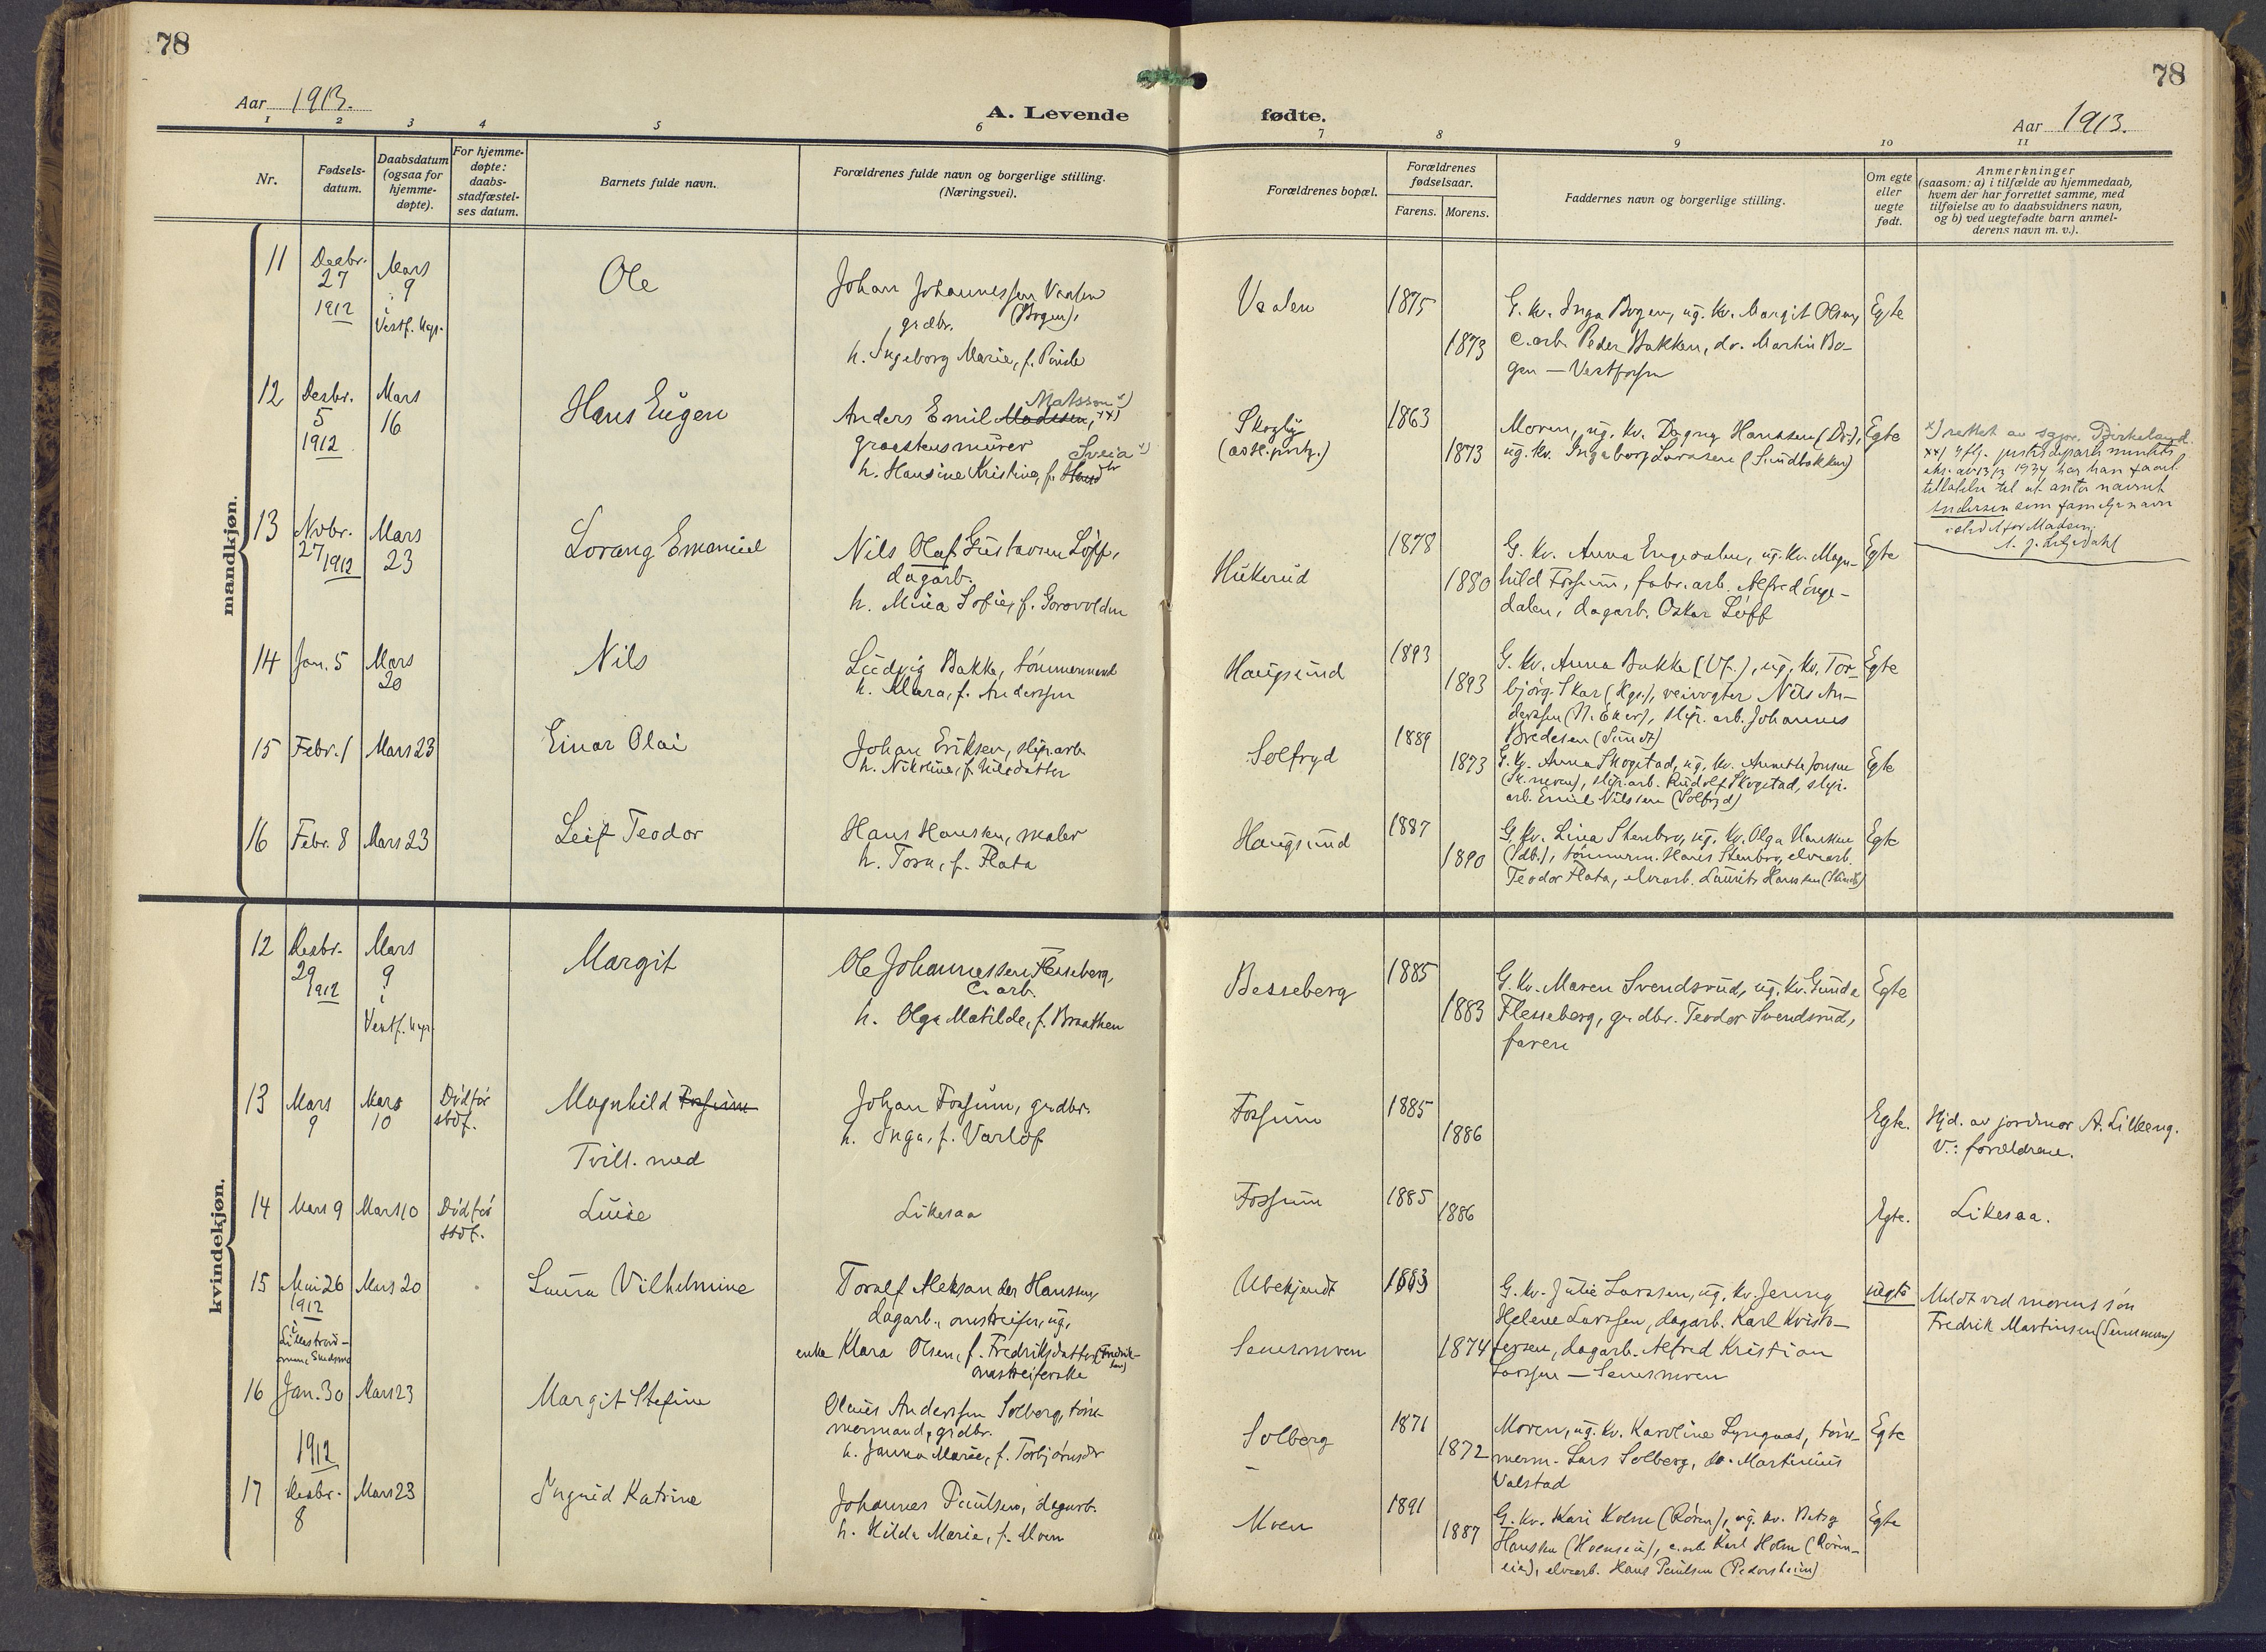 78
78
Aar 1913.
A. Levende fødte.
Aar 1913.
1 2 3 4 5 6 7 8 9 10 11
Nr.
Fødsels-
datum.
Daabsdatum
(ogsaa for
hjemme-
døpte).
For hjemme-
døpte:
daabs-
stadfæstel-
ses datum.
Barnets fulde navn.
Forældrenes fulde navn og borgerlige stilling.
(Næringsvei).
Forældrenes bopæl.
Forældrenes
fødselsaar.
Farens. Morens.
Faddernes navn og borgerlige stilling.
Om egte
eller
uegte
født.
Anmerkninger
(saasom: a) i tilfælde av hjemmedaab,
hvem der har forrettet samme, med
tilføielse av to daabsvidners navn,
og b) ved uegtefødte barn anmel-
derens navn m. v.).
mandkjøn.
11
Desbr.
27
1912
Mars
9
i
Vestf. kap.
Ole
Johan Johannessen Vaalen
(Bogen),
grdbr.
h. Ingeborg Marie, f.
Vaalen
1875
1873
G. kv. Inga Bogen, ug. kv. Margit Olsen,
c.arb. Peder Bakken, dr. Martin Bo-
gen — Vestfossen
Egte
12
Desbr.
5
1912
Mars
16
Hans Eugen
Matsson x)
Anders Emil Madsen, xx)
graastensmurer
Sveia x)
h. Hansine Kristine, f.
Skogly
1863
1873
Moren, ug. kv. Dagny Hanssen (Dr.),
ug. kv. Ingeborg Larssen (Sundbakken)
Egte
x) rettet av sogpr. Birkeland.
xx) Ifl. justisdepartementets
1934 har han faat
tillatelse til at anta navnet
Andersen som familienavn
istedetfor Madsen.
13
Nvbr.
27 1912
Mars
23
Lorang Emanuel
Nils Olaf Gustavsen Løff,
dagarb.
h. Mina Sofie, f. Gorovolden
Hukerud
1878
1880
G. kv. Anna Engedalen, ug. kv. Magn-
hild Fossum, fabr.arb. Alfred Enge-
dalen, dagarb. Oskar Løff
Egte
14
Jan. 5
Mars
20
Nils
Ludvig Bakke, tømmermand
h. Klara, f. Anderssen
Haugsund
1893
1893
G. kv. Anna Bakke (Vf.), ug. kv. Tor-
bjørg Skar (Kgs.), veivogter Nils An-
derssen (N. Eker), slip. arb. Johannes
Bredesen (Sundt)
Egte
15
Febr. 1
Mars 23
Einar Olai
Johan Eriksen, slip.arb.
h. Nikoline, f. Nilsdatter
Solfryd
1889
1873
G. kv. Anna Skogstad, ug. kv. Annette Jonsen
slip.arb. Rudolf Skogstad, slip.
arb. Emil Nilssen (Solfryd)
Egte
16
Febr. 8
Mars 23
Leif Teodor
Hans Hanssen, maler
h. Tora, f. Flata
Haugsund
1887
1890
G. kv. Lina Stenbro, ug. kv. Olga Hanssen
(Sdb.), tømmerm. Hans Stenbro, elvearb.
Teodor Flata, elvearb. Laurits Hanssen
Egte
kvindekjøn.
12
Desbr.
29
1912
Mars
9
i
Vestf. kap.
Margit
Ole Johannessen Flesseberg,
c. arb.
h. Olga Matilde, f. Braathen
Besseberg
1885
1883
G. kv. Maren Svendsrud, ug. kv. Gunda
Flesseberg, grdbr. Teodor Svendsrud,
faren
Egte
13
Mars
9
Mars
10
Död før
stdf.
Magnhild Fossum
Tvill. med
Johan Fossum, grdbr.
h. Inga, f. Varlof
Fossum
1885
1886
Egte.
Hjd. av jordmor A. Lilleeng.
V.: forældrene.
14
Mars 9
Mars 10
Död før
stdf.
Luise
Likesaa
Fossum
1885
1886
Egte.
Likesaa.
15
Mai 26
1912
i
Mars 20
Laura Vilhelmine
Toralf Aleksander Hanssen,
dagarb., omstreifer, ug.
enke Klara Olsen, f. Fredriksdatter (Fredrik-
sen)
omstreiferske
Ubekjendt
1883
Semsmoen
1874
G. kv. Julie Larssen, ug. kv. Jenny
Helene Larssen, dagarb. Karl Kristo-
fersen, dagarb. Alfred Kristian
Larssen — Semsmoen
uegte
Meldt ved morens søn
Fredrik Martinsen (Semsmoen)
16
Jan. 30
Mars 23
Margit Stefine
Olaus Anderssen Solberg, tøm-
mermand, grdbr.
h. Janna Marie, f. Torbjørnsdr
Solberg
1871
1872
Moren, ug. kv. Karoline Lyngaas, tøm-
merm. Lars Solberg, do. Martinius
Valstad
Egte
17
1912
Desbr.
8
Mars 23
Ingrid Katrine
Johannes Paulsen, dagarb.
h. Hilda Marie, f. Moen
Moen
1891
1887
G. kv. Kari Holm (Røren), ug. kv. Betsy
Hanssen c.arb. Karl Holm (Røren-
eie), elvearb. Hans Paulsen (Pedersheim)
Egte